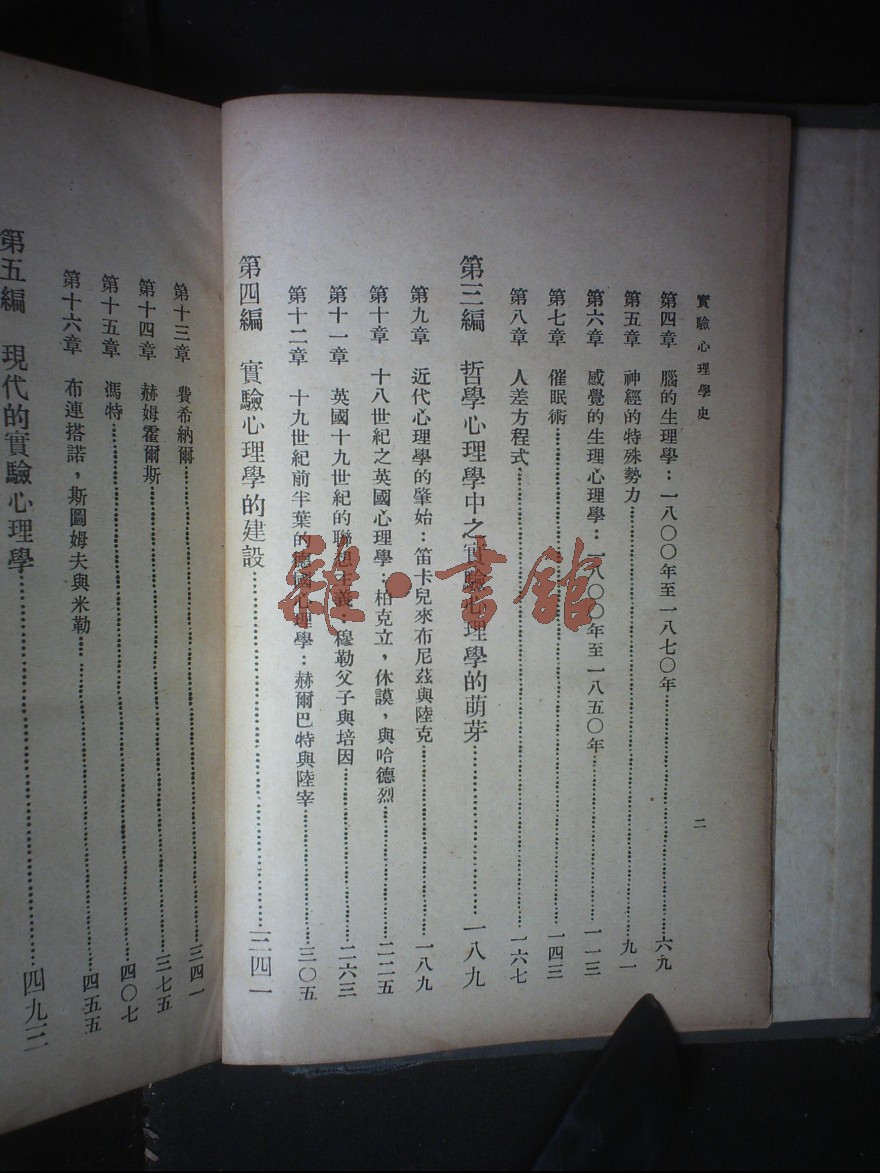 實驗心理學史
二
第四章 腦的生理學：一八〇〇年至一八七〇年……六九
第五章 神經的特殊勢力……九一
第六章 感覺的生理心理學：一八〇〇年至一八五〇年……一一三
第七章 催眠術……一四三
第八章 人差方程式……一六七
第三編 哲學心理學中之實驗心理學的萌芽……一八九
第九章 近代心理學的肇始：笛卡兒來布尼茲與陸克……一八九
第十章 十八世紀之英國心理學：柏克立，休謨，與哈德烈……二二五
第十一章 英國十九世紀的聯想主義：穆勒父子與培因……二六三
第十二章 十九世紀前半葉的德國心理學：赫爾巴特與陸宰……三〇五
第四編 實驗心理學的建設……三四一
第十三章 費希納爾……三四一
第十四章 赫姆霍爾斯……三七五
第十五章 馮特……四〇七
第十六章 布連搭諾，斯圖姆夫與米勒……四五五
第五編 現代的實驗心理學……四九三
雜·書館